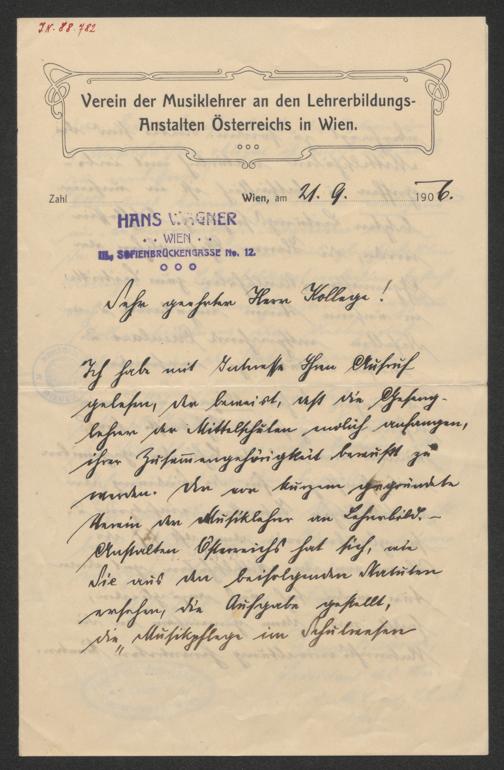 IN. 88.782
Verein der Musiklehrer an den Lehrerbildungs-
Anstalten Österreichs in Wien.
Zahl
Wien, am 21. 9. 1906.
HANS WAGNER
WIEN
III., SOFIENBRÜCKENGASSE No. 12.
Sehr geehrter Herr Kollege!
Ich habe mit Interesse Ihren Aufruf
gelesen, der beweist, daß die Gesang-
lehrer der Mittelschulen endlich anfangen,
ihrer Zusammengehörigkeit bewußt zu
werden. Der vor kurzem gegründete
Verein der Musiklehrer an Lehrerbild.-
Anstalten Österreichs hat sich, wie
Sie aus den beifolgenden Statuten
ersehen, die Aufgabe gestellt,
die „Musikpflege im Schulwesen